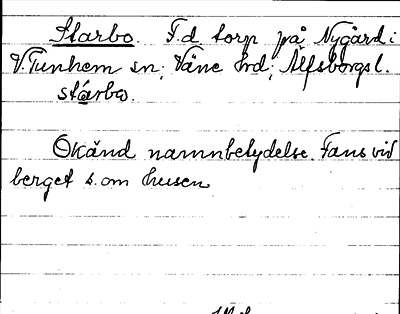 Starbo. F.d. torp på Nygård i
V. Tunhem sn; Väne hrd; Älfsborgs l.
stárbω.
Okänd namnbetydelse. Fans vid
berget s. om husen